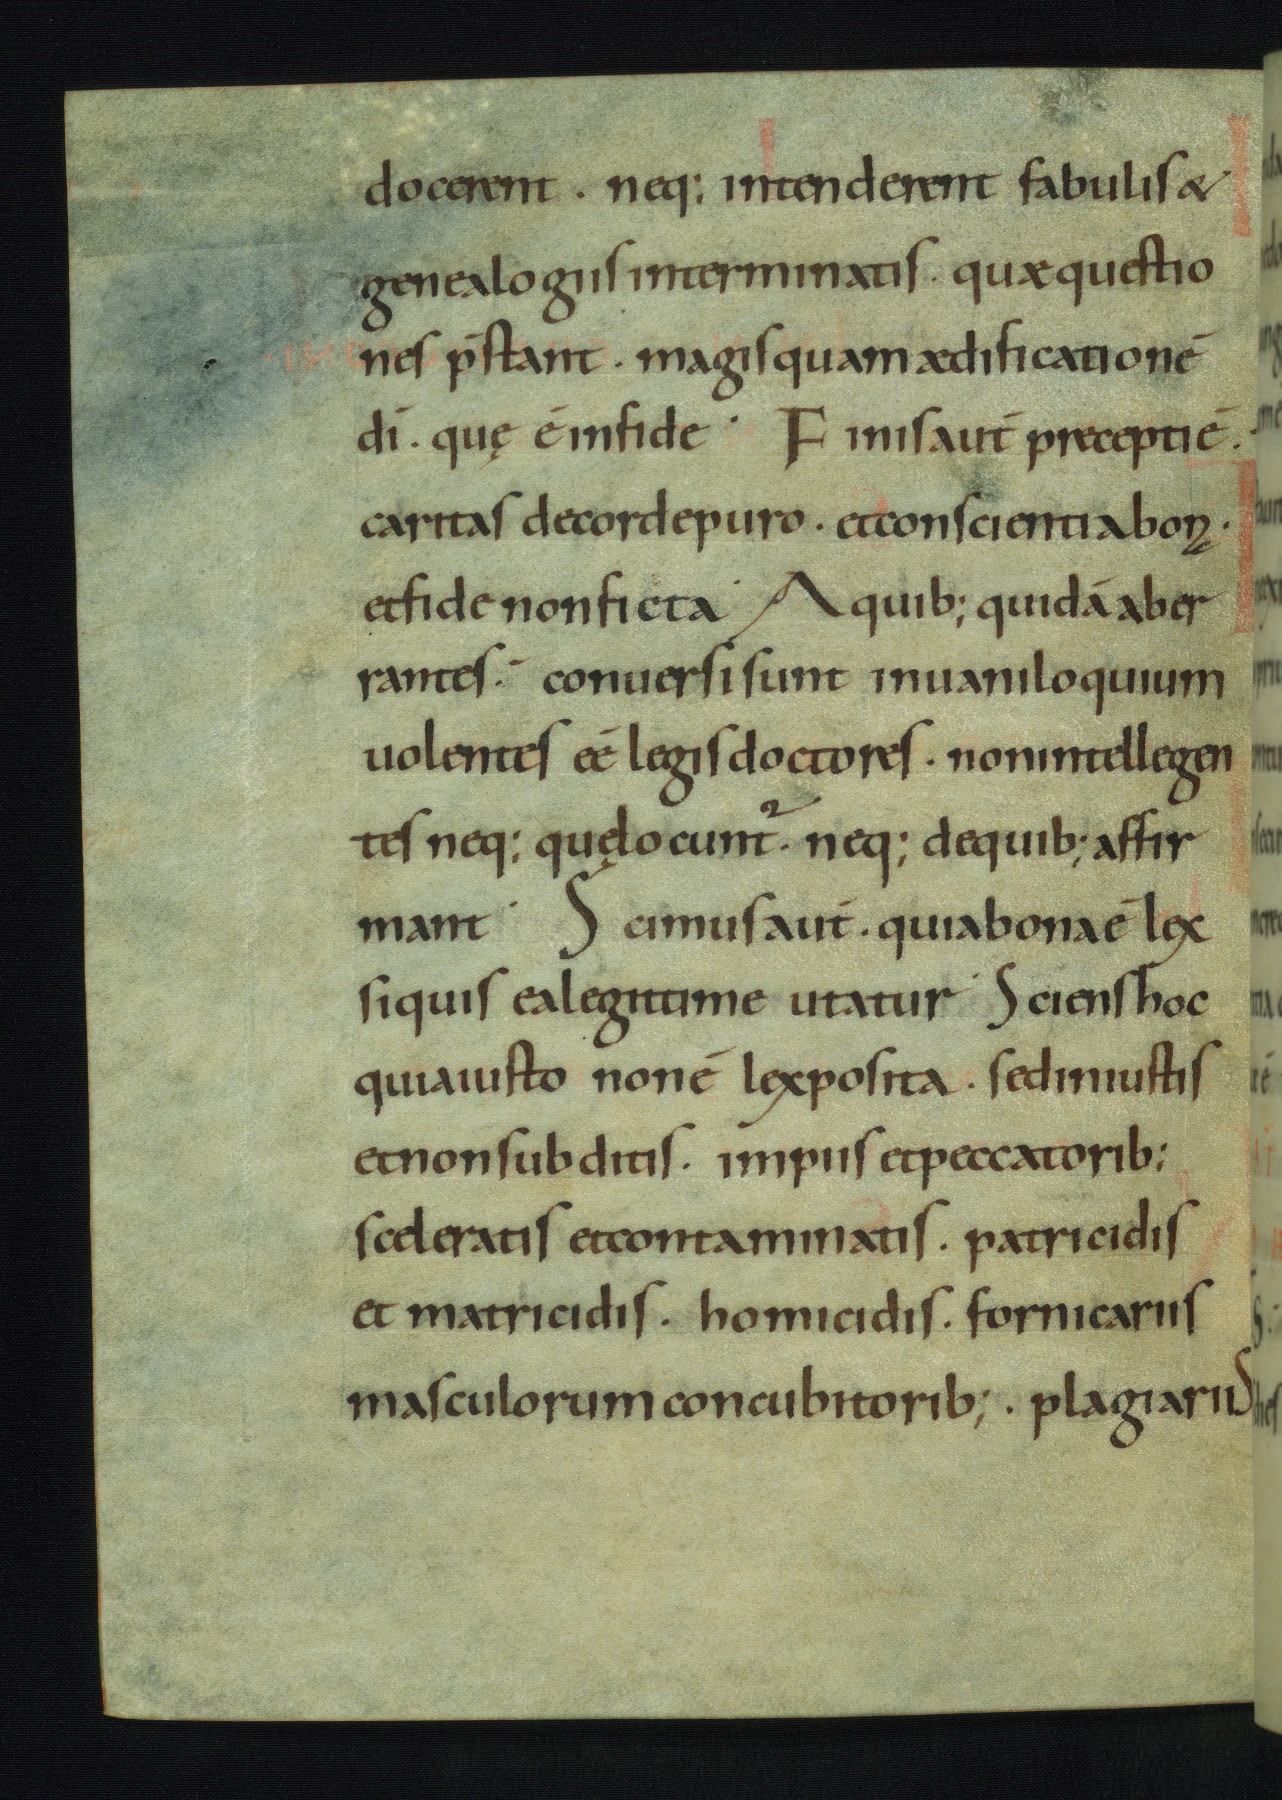 docerent . neq; intenderent fabulis &
genealogiis interminatis . quæ questio
nes p̄stant . magis quam ædificationē
dī . quę ē in fide · Finis aut̄ precepti ē .
caritas de corde puro . et conscientia bonę .
et fide non ficta · A quib; quidā aber
rantes . conuersi sunt in uaniloquium
uolentes eē legis doctores . non intellegen
tes neq; quę locunt᷑ . neq; de quib; affir
mant · Scimus aut̄ . quia bona ē lex
si quis ea legitime utatur · Sciens hoc
quia iusto non ē lex posita . sed iniustis
et non subditis . impiis et peccatorib;
sceleratis et contaminatis . patricidis
et matricidis . homicidis . fornicariis
masculorum concubitorib; . plagiariis